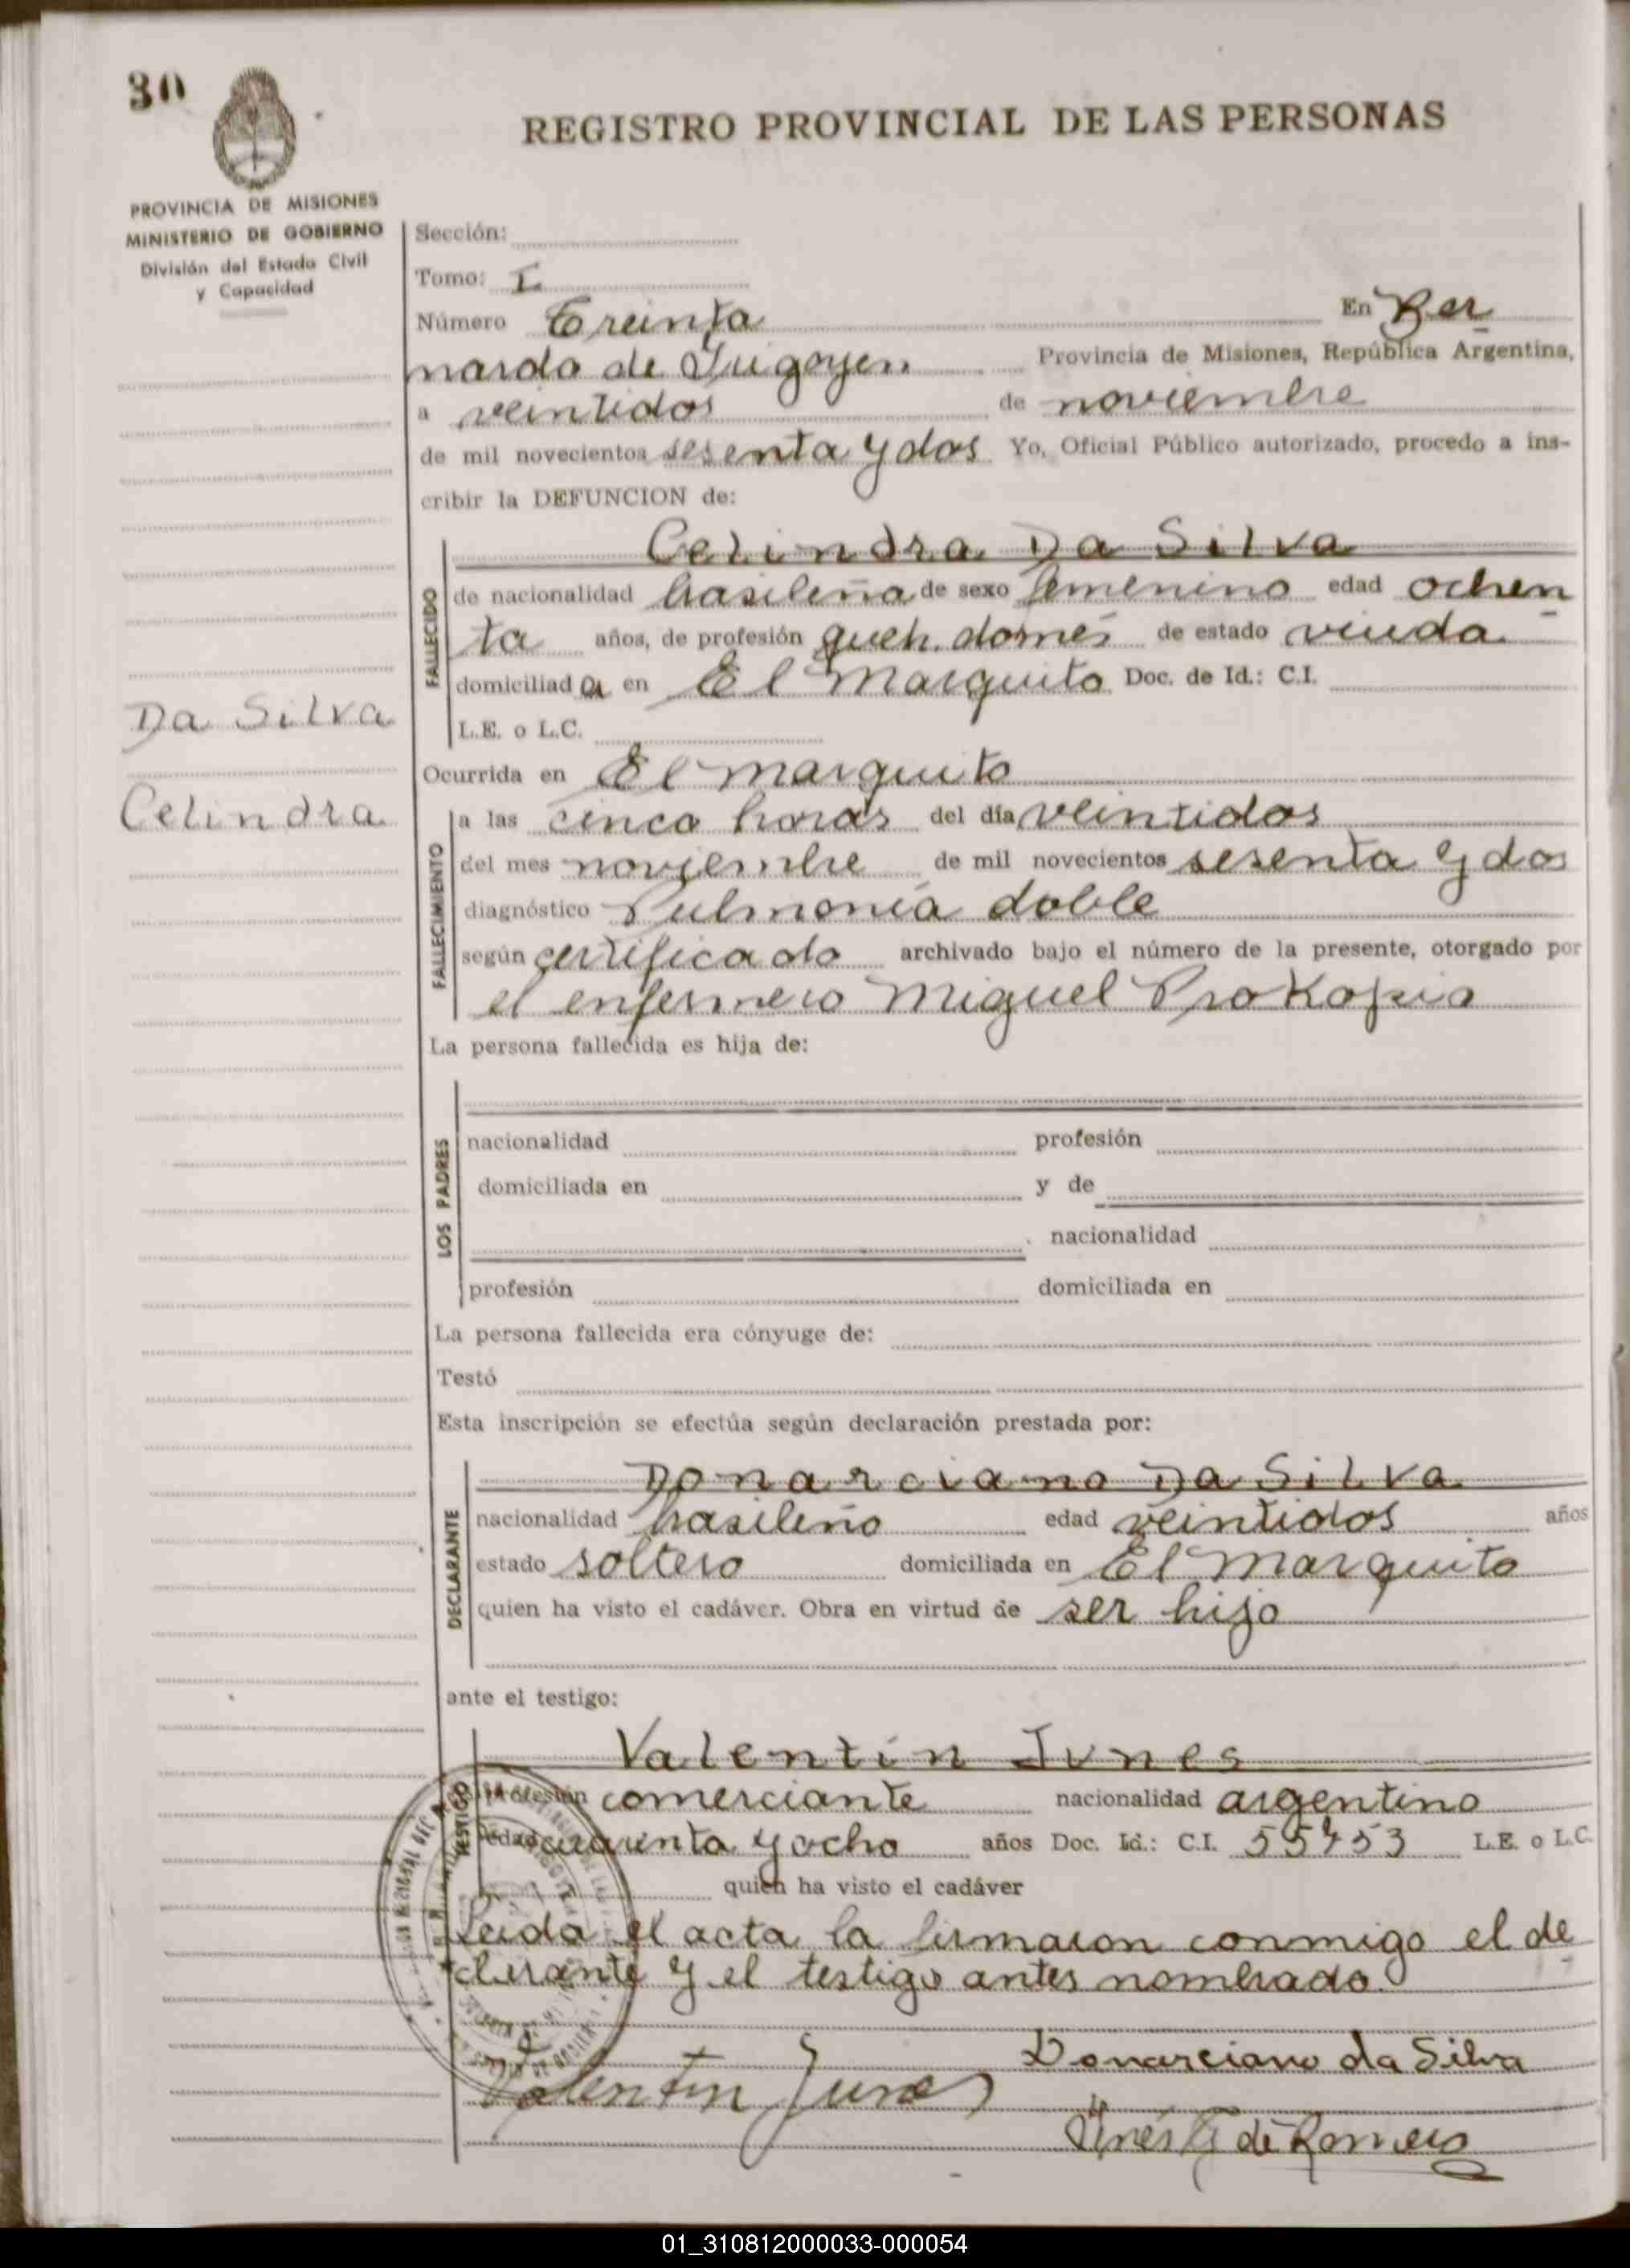 30
REGISTRO PROVINCIAL DE LAS PERSONAS
PROVINCIA DE MISIONES
MINISTERIO DE GOBIERNO
División del Estado Civil
y Capacidad
Sección:
Tomo: I
Número Treinta En Ber
nardo de Irigoyen Provincia de Misiones, República Argentina,
a veintidos de noviembre
de mil novecientos sesenta y dos Yo, Oficial Público autorizado, procedo a ins-
cribir la DEFUNCION de:
Celindra Da Silva
FALLECIDO
de nacionalidad brasileña de sexo femenino edad ochen
ta años, de profesión queh. domés de estado viuda
domiciliada en El Marquito Doc. de Id.: C.I.
L.E. o L.C.
Da Silva
Celindra
Ocurrida en El Marquito
FALLECIMIENTO
a las cinco horas del día veintidos
del mes noviembre de mil novecientos sesenta y dos
diagnóstico Pulmonía doble
según certificado archivado bajo el número de la presente, otorgado por
el enfermero Miguel Prokopio
La persona fallecida es hija de:
LOS PADRES
nacionalidad profesión
domiciliada en y de
nacionalidad
profesión domiciliada en
La persona fallecida era cónyuge de:
Testó
Esta inscripción se efectúa según declaración prestada por:
Donarciano Da Silva
DECLARANTE
nacionalidad brasileño edad veintidos años
estado soltero domiciliada en El Marquito
quien ha visto el cadáver. Obra en virtud de ser hijo
ante el testigo:
Valentín Junes
TESTIGO
profesión comerciante nacionalidad argentino
edad cuarenta y ocho años Doc. Id.: C.I. 55453 L.E. o L.C.
quien ha visto el cadáver
Leida el acta la firmaron conmigo el de
clarante y el testigo antes nombrado.
Donarciano da Silva
Valentin Junes
Inés G de Romero
01_310812000033-000054